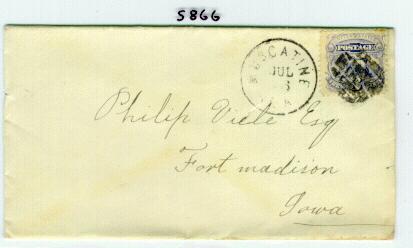 5866
MUSCATINE
JUL
6
POSTAGE
Philip Viele Esq
Fort madison
Iowa